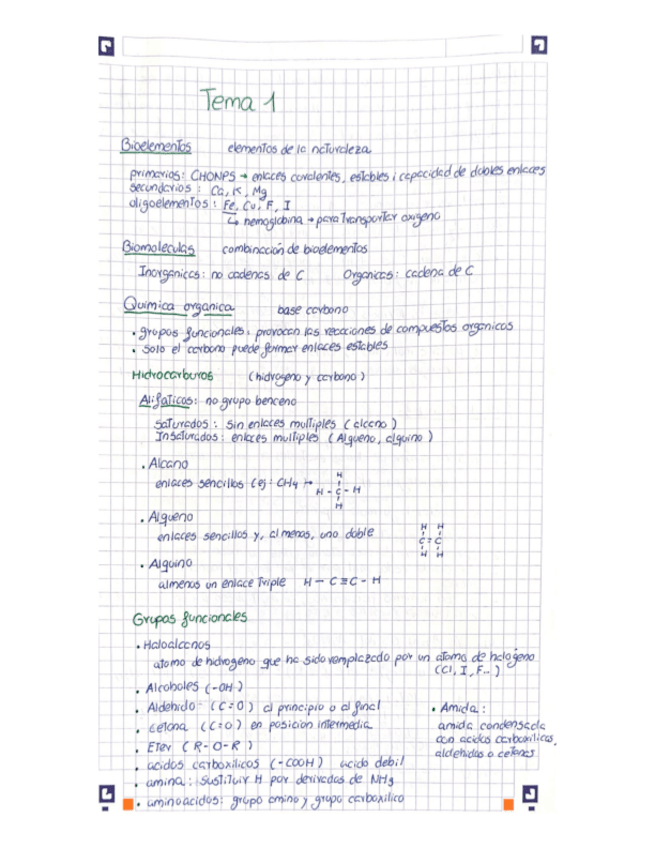 Tema 1
Bioelementos elementos de la naturaleza
primarios: CHONPS → enlaces covalentes, estables i capacidad de dobles enlaces
secundarios: Ca, K, Mg
oligoelementos: Fe, Cu, F, I
↳ hemoglobina → para transportar oxigeno
Biomoleculas combinación de bioelementos
Inorganicas: no cadenas de C Organicas: cadena de C
Quimica organica base carbono
• grupos funcionales: provocan las reacciones de compuestos organicos
• solo el carbono puede formar enlaces estables
Hidrocarburos (hidrogeno y carbono)
Alifaticos: no grupo benceno
Saturados: sin enlaces multiples (alcano)
Insaturados: enlaces multiples (Alqueno, alquino)
• Alcano
enlaces sencillos (ej: CH4 →
H
H - C - H
H
• Alqueno
enlaces sencillos y, al menos, uno doble
H H
C = C
H H
• Alquino
almenos un enlace triple H - C ≡ C - H
Grupos funcionales
• Haloalcanos
atomo de hidrogeno que ha sido remplazado por un atomo de halogeno
(Cl, I, F..)
• Alcoholes (-OH)
• Aldehido (C=O) al principio o al final
• cetona (C=O) en posicion intermedia
• Eter (R-O-R)
• acidos carboxilicos (-COOH) acido debil
• amina: sustituir H por derivados de NH3
• aminoacidos: grupo amino y grupo carboxilico
• Amida:
amida condensada
con acidos carboxilicos,
aldehidos o cetonas